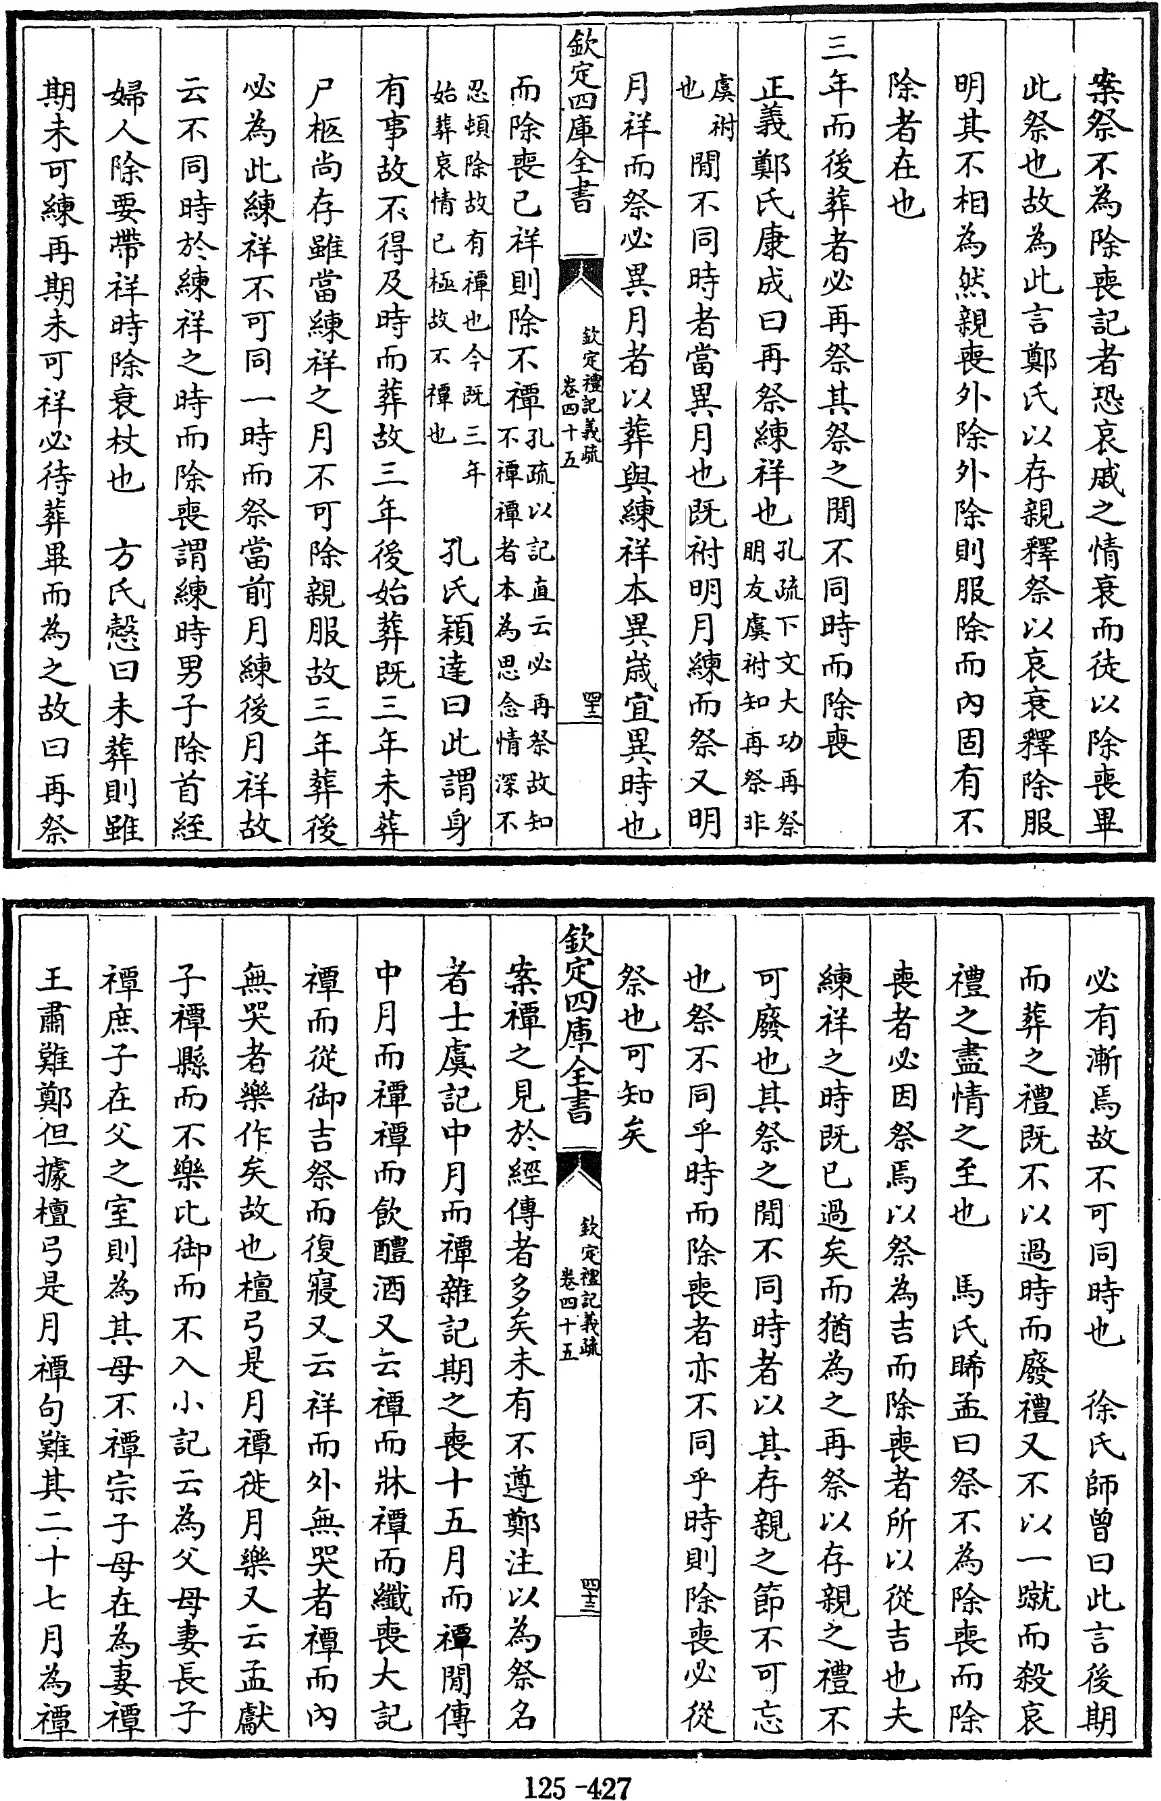 案祭不為除喪記者恐哀戚之情衰而徒以除喪畢
此祭也故為此言鄭氏以存親釋祭以哀衰釋除服
明其不相為然親喪外除外除則服除而內固有不
除者在也
三年而後葬者必再祭其祭之閒不同時而除喪
正義鄭氏康成曰再祭練祥也孔疏下文大功再祭
明友虞祔知再祭非
虞祔
也閒不同時者當異月也既祔明月練而祭又明
月祥而祭必異月者以葬與練祥本異歲宜異時也
欽定四庫全書
欽定禮記義疏
卷四十五
四十二
而除喪已祥則除不禫孔疏以記直云必再祭故知
不禫禫者本為思念情深不
忍頓除故有禫也今既三年
始葬哀情已極故不禫也
孔氏穎達曰此謂身
有事故不得及時而葬故三年後始葬既三年未葬
尸柩尚存雖當練祥之月不可除親服故三年葬後
必為此練祥不可同一時而祭當前月練後月祥故
云不同時於練祥之時而除喪謂練時男子除首絰
婦人除要帶祥時除衰杖也　方氏慤曰未葬則雖
期未可練再期未可祥必待葬畢而為之故曰再祭
必有漸焉故不可同時也　徐氏師曾曰此言後期
而葬之禮既不以過時而廢禮又不以一蹴而殺哀
禮之盡情之至也　馬氏晞孟曰祭不為除喪而除
喪者必因祭焉以祭為吉而除喪者所以從吉也夫
練祥之時既已過矣而猶為之再祭以存親之禮不
可廢也其祭之閒不同時者以其存親之節不可忘
也祭不同乎時而除喪者亦不同乎時則除喪必從
祭也可知矣
欽定四庫全書
欽定禮記義疏
卷四十五
四十三
案禫之見於經傳者多矣未有不遵鄭注以為祭名
者士虞記中月而禫雜記期之喪十五月而禫閒傳
中月而禫禫而飲醴酒又云禫而牀禫而纖喪大記
禫而從御吉祭而復寢又云祥而外無哭者禫而內
無哭者樂作矣故也檀弓是月禫徙月樂又云孟獻
子禫縣而不樂比御而不入小記云為父母妻長子
禫庶子在父之室則為其母不禫宗子母在為妻禫
王肅難鄭但據檀弓是月禫句難其二十七月為禫
125-427